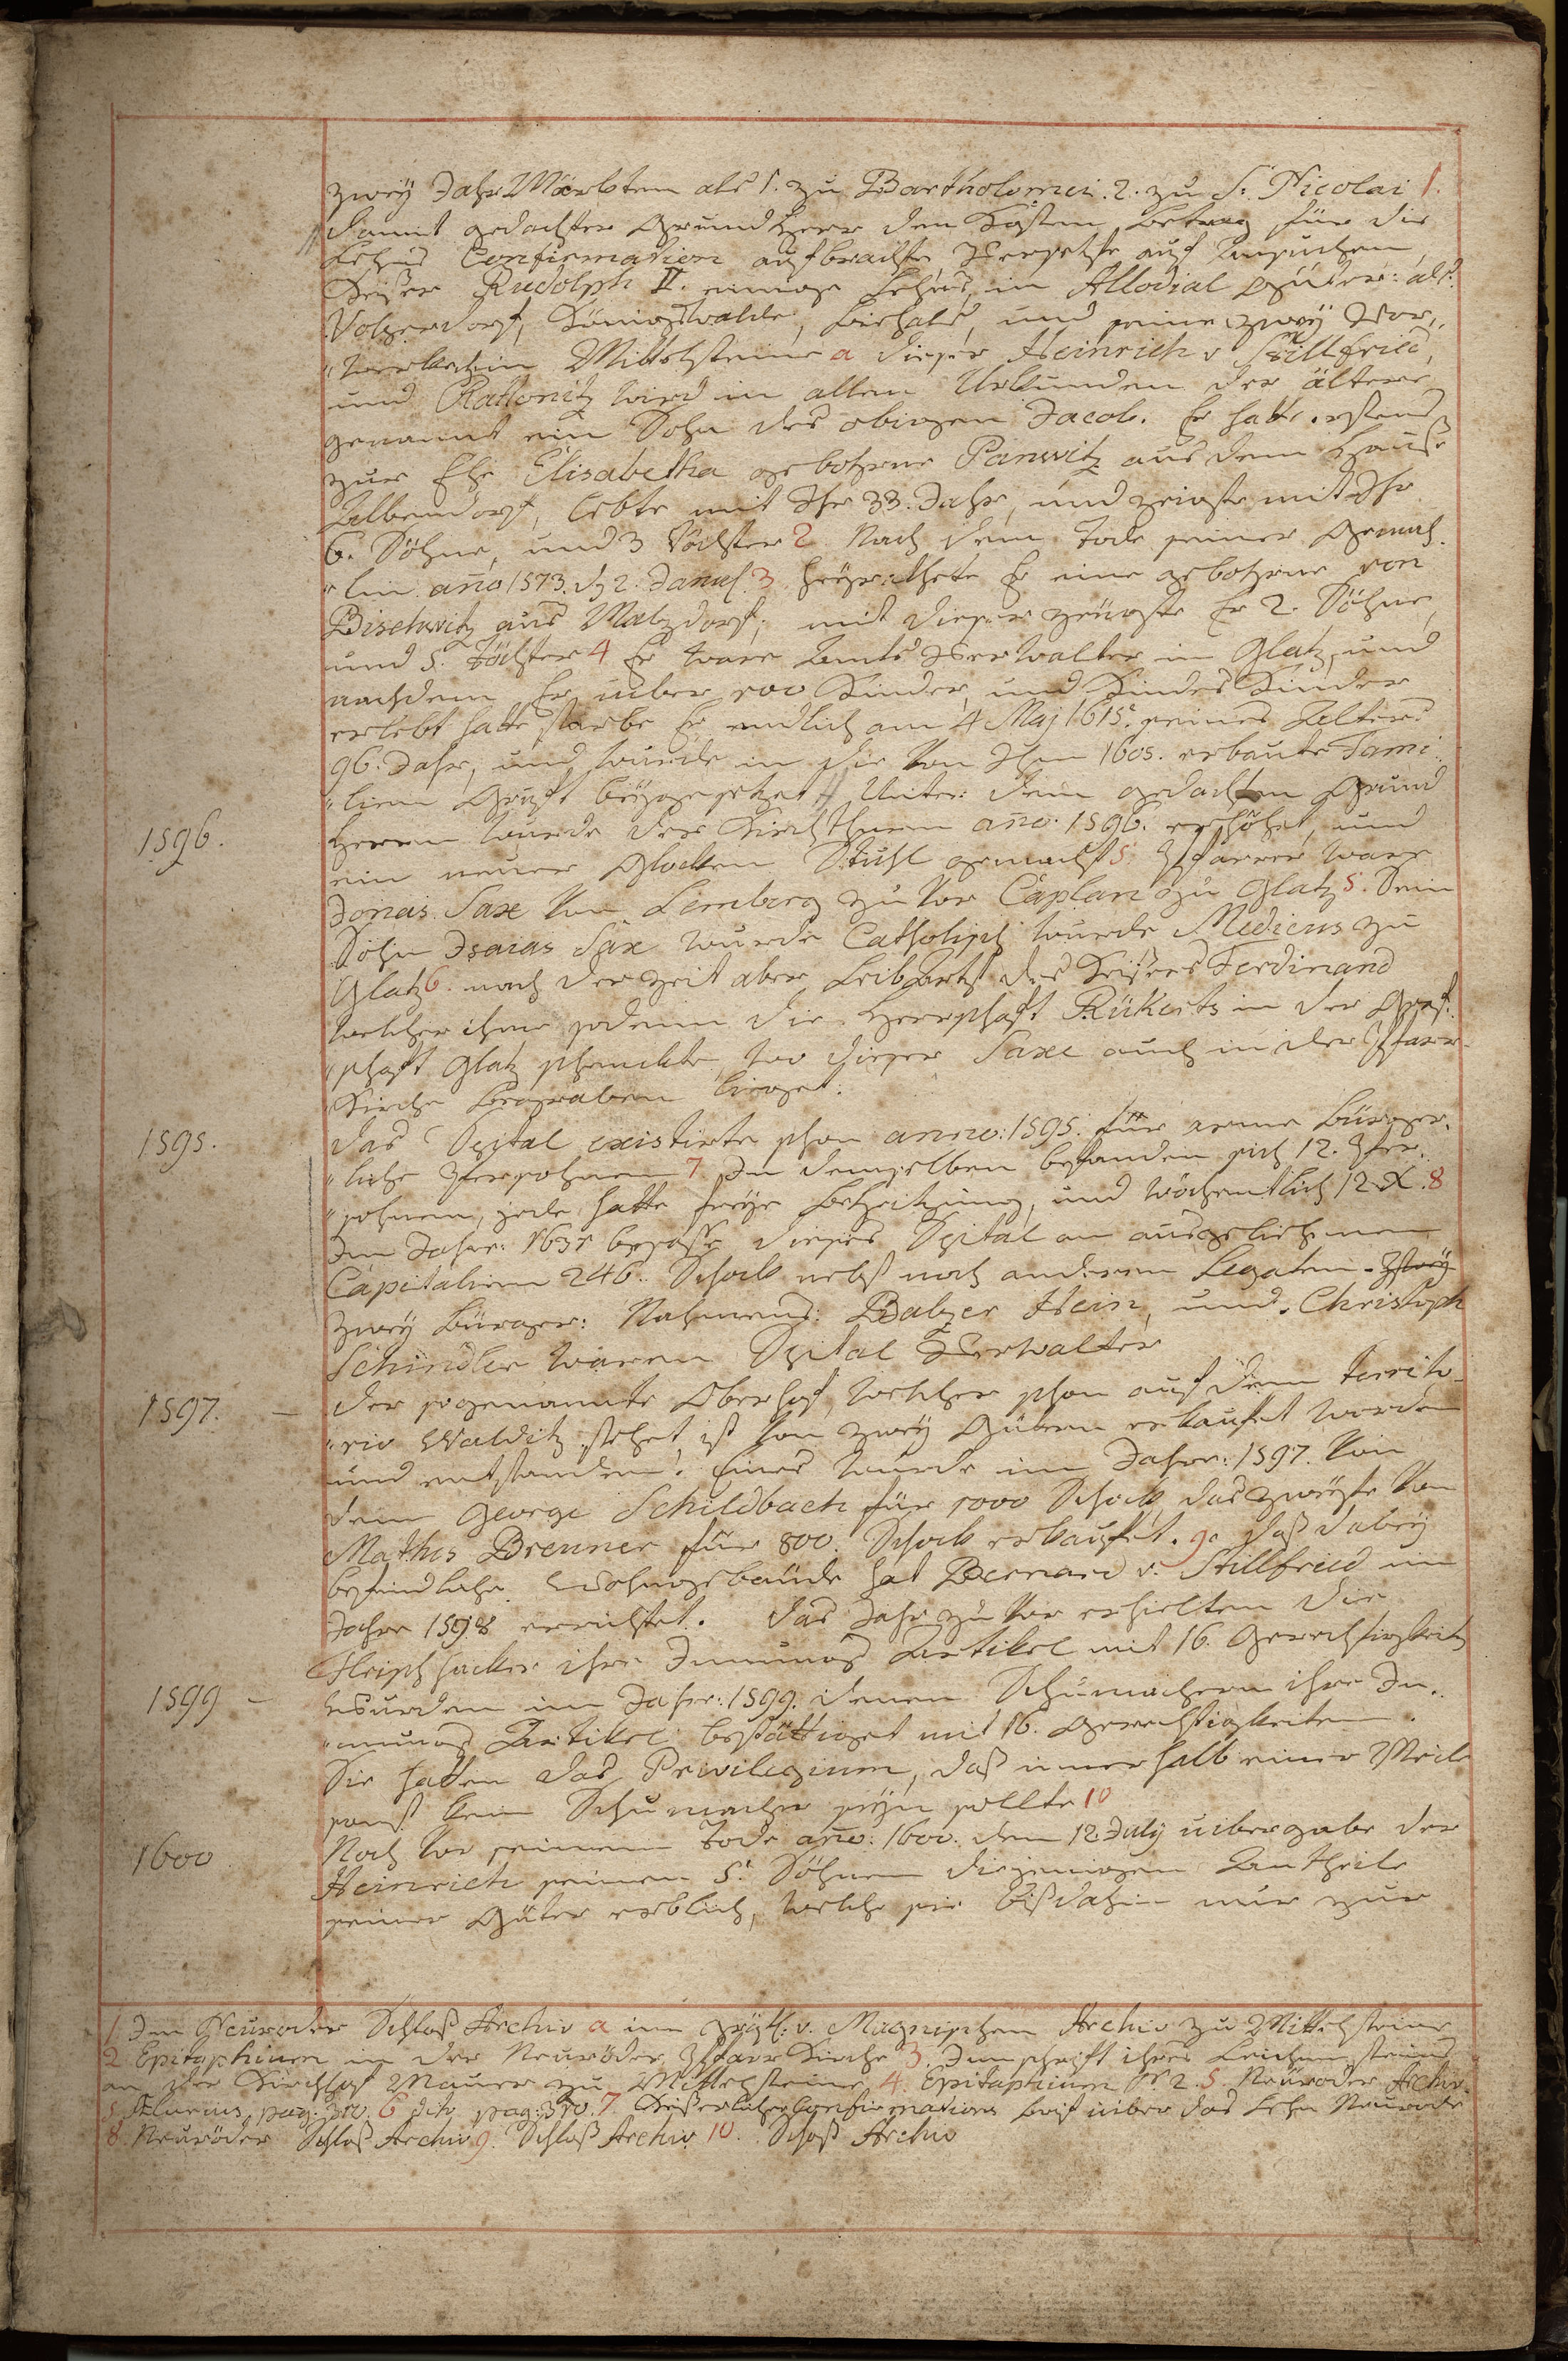 zweÿ Jahr Märkten als 1. zu Bartholomei. 2. zu S: Nicolai 1.
damit gedachter Grund Herr den Kosten betrag für die
Lehns Confirmation aufbrachte Versetzte auf Ansuchen
Keiser Rudolph II. einige Lehns, in Allodial Güter: als:
Volpersdorf, Königswalde, Birhals, und seine zweÿ Vor„
„werke in Mittelsteine a dieser Heinrich v Stillfried,
und Rattonitz wird in allen Urkunden der ältere
genannt ein Sohn des obigen Jacob. Er hatte erstens
zur Ehe Elisabetha gebohrne Panwitz aus dem Hause
Albendorf, lebte mit Ihr 33. Jahr, und zeigte mit Ihr
6. Söhne, und 3 Töchter 2. Nach dem Tode seiner Gemah.
„lin año 1573. d 2. Januß. 3 heÿrathete Er eine gebohrne von
Bischwitz aus Malzdorf, mit dieser zeugte Er 2. Söhne,
und 5. Töchter 4 Er ware Amts Verwalter in Glatz, und
nachdem Er über 100 Kinder, und Kindes Kinder
erlebt hatte starbe Er endlich am 4 Maj 1615. seines Alters
96. Jahr, und wurde in die Von Ihm 1605. erbaute Fami
„lien Gruft beÿgesetzet // Unter dem gedachten Grund
1596. Herren wurde der Kirchthurm año. 1596. erhöhet, und
ein neuer Glocken Stuhl gemacht 5 Pfarrer ware
Jonas Saxe von Lemberg zu vor Caplan zu Glatz 5. Sein
Sohn Isaias Sax wurde Catholisch wurde Medicus zu
Glatz 6. nach der Zeit aber Leib Artzt des Keisers Ferdinand
welcher ihme sodann die Herrschaft Rükerts in der Graf„
„schaft Glatz schenckte, wo dieser Saxe auch in der Pfarr„
Kirche begraben lieget.
1595. Das Spital existirte schon anno: 1595. für arme Bürger„
„liche Persohnen 7 In demselben befanden sich 12. Per„
„sohnen, jede hatte freÿe beheitzung, und wöchentlich 12 X. 8
Im Jahre: 1631 besasse dieses Spital an ausgeliehenen
Capitalien 246. Schock nebst noch anderen Legaten. Zweÿ
zweÿ Bürger: Nahmens: Balzer Hein, und. Christoph
Schindler waren Spital Verwalter
1597. – Der sogenannte Oberhof, welcher schon auf dem territo„
„rio Walditz stehet, ist von zweÿ Gütern erkauft worden
und entstanden. Eines wurde im Jahre: 1597. von
dem George Schildbach für 1000 Schock das zweÿte von
Mathes Brenner für 800. Schock erkaufet. 9. das dabeÿ
befindliche Wohngebäude hat Bernard v. Stillfried im
Jahre 1598 errichtet. Das Jahr zu vor erhielten die
Fleischhacker ihre Innungs Artikel mit 16 Gerechtigkeiten
1599 – wurden im Jahre: 1599. denen Schumachern ihre In„
„nungs Artikel bestättiget mit 16. Gerechtigkeiten.
Sie hatten das Privilegium, daß innerhalb einer Meile
sonst kein Schumacher seÿn sollte 10
1600 Noch vor seinem Tode año: 1600. den 12 Julÿ uibergabe der
Heinrich seinen 5. Söhnen diejenigen Antheile
seiner Güter erblich, welche sie biß dahin nur zur
1 Im Neuroder Schloß Archiv a im Gräfl: v. Magnischen Archiv zu Mittelsteine
2 Epitaphium in der Neuröder Pfarr Kirche 3. Innschrift ihres Leichensteins
an der Kirchhof Mauer zu Mittelsteine 4 Epitaphium N. 2. 5. Neuroder Archiv.
5 Aelurius pag: 310. 6 dito pag: 310. 7. Keiserlicher Confirmations Brif über das Lehn Neurode
8. Neuröder Schloß Archiv 9. Schloß Archiv 10. Schloß Archiv